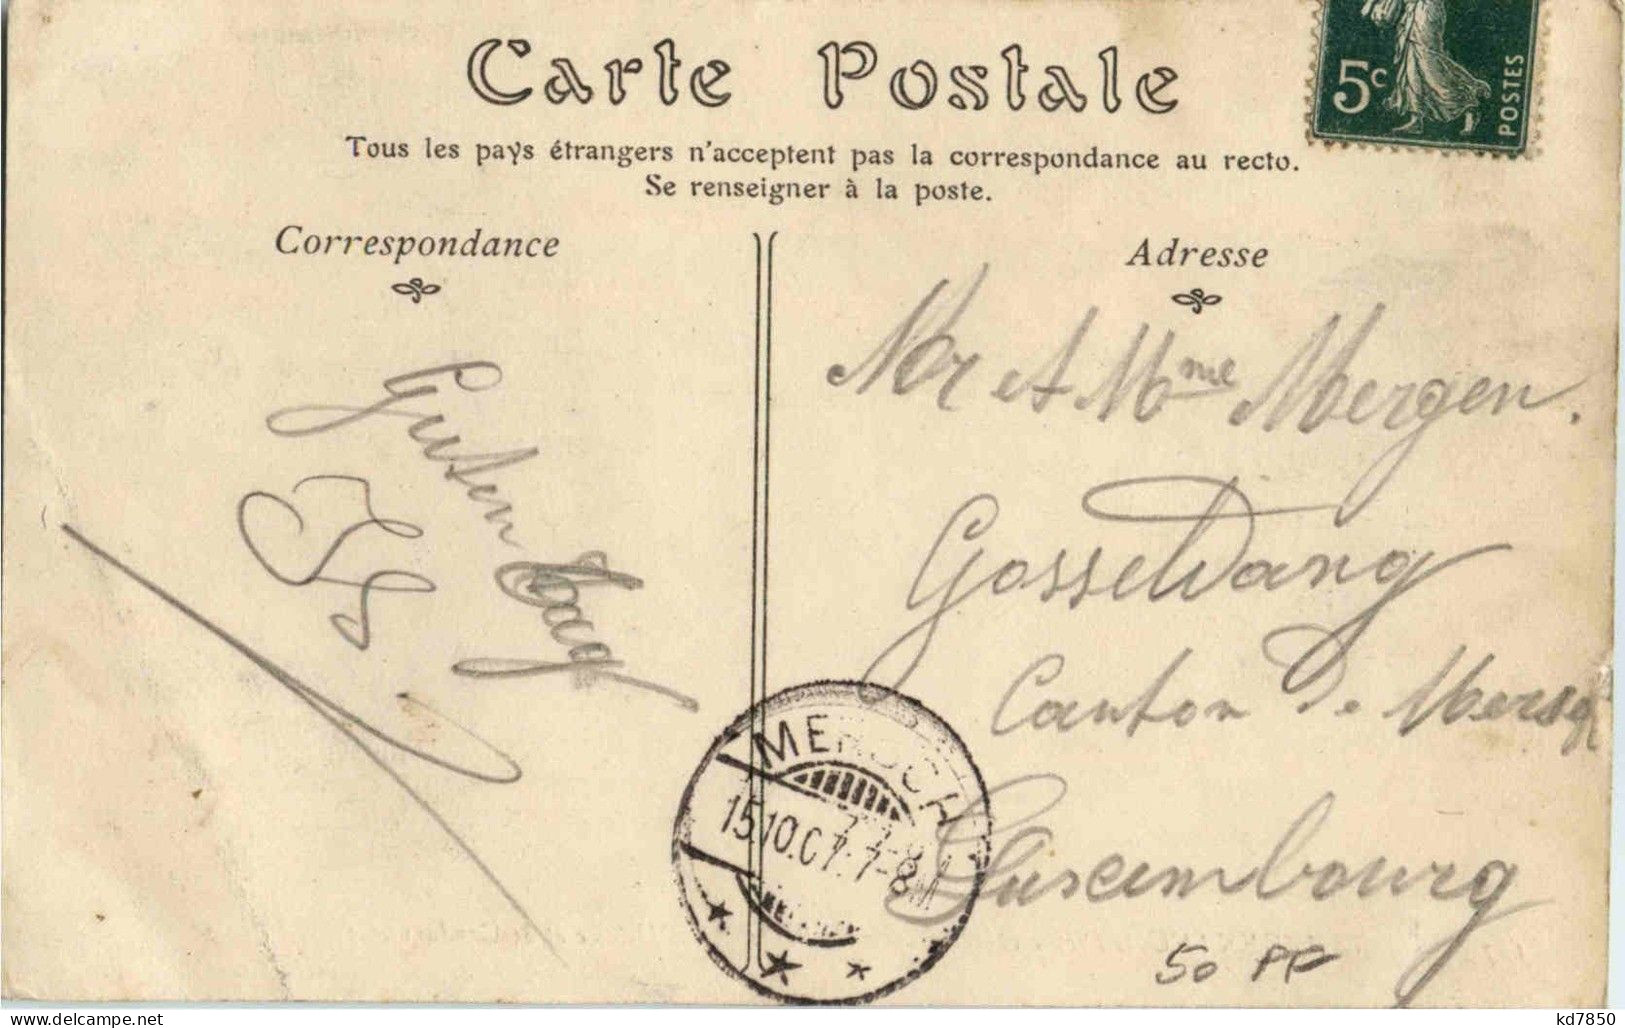 Carte Postale
5c
POSTES
Tous les pays étrangers n'acceptent pas la correspondance au recto.
Se renseigner à la poste.
Correspondance
Guten
Tag
Adresse
Mr et Mme Mergen.
Gosseldang
Canton de Mersch
Luxembourg
MERSCH
15.10.07.7-8
50 PF
delcampe.net
kd7850